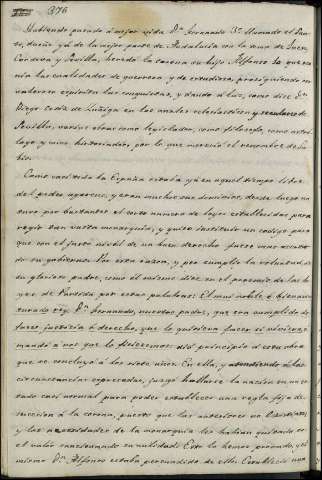 376
Habiendo pasado à mejor vida Dn Fernando 3º llamado el San-
to, dueño yá de la mejor parte de Andalucia con la toma de Jaen
Cordova y Sevilla, heredó la corona su hijo Alfonso 10 que reu-
nia las cualidades de guerrero y de estudioso, prosiguiendo con
valor en espíritu las conquistas, y dando á luz, como dice Dn
Diego Ortiz de Zuñiga en los anales eclesiasticos y seculares de
Sevilla, varias obras como legislador, como filosofo, como astró-
logo y como historiador, por lo que mereció el renombre de Sa-
bio.
Como casi toda la España estaba yá en aquel tiempo libre
del poder agareno, y eran muchos sus dominios, desde luego no
tuvo por bastantes el corto numero de leyes establecidas para
regir tan vasta monarquia, y quiso instituir un codigo para
que con el justo nivel de un buen derecho fuese mas acerta-
do su gobierno. Por esta razon, y por cumplir la voluntad de
su glorioso padre, como él mismo dice en el proemio de las le-
yes de Partida por estas palabras: El muy noble é bienaven-
turado rey Dn Fernando, nuestro padre, que era cumplido de
facer justicia é derecho, que lo quisiera facer si
mandó a nos que lo ficiesemos: dió principio á esta obra
que se concluyó á los siete años. En ella, y atendiendo á las
circunstancias espresadas, juzgó hallarse la nacion en un es-
tado casi normal para poder establecer una regla fija de
sucesion á la corona, puesto que las anteriores no
y las necesidades de la monarquia les habian quitado
el valor sancionando su nulidad. Esto lo hemos probado, y el
mismo Dn Alfonso estaba persuadido de ello. Estableció una